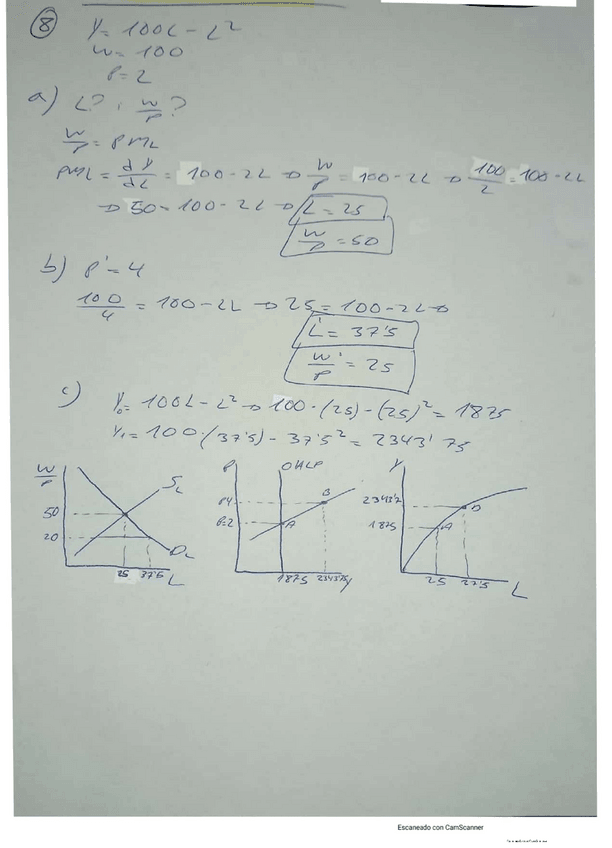 8
Y = 100L - L²
W = 100
P = 2
a) L? , W/P ?
W/P = PML
PML = dY/dL = 100 - 2L → W/P = 100 - 2L → 100/2 = 100 - 2L
→ 50 = 100 - 2L → L = 25
W/P = 50
b) P' = 4
100/4 = 100 - 2L → 25 = 100 - 2L →
L' = 37'5
W/P' = 25
c) Y₀ = 100L - L² → 100·(25) - (25)² = 1875
Y₁ = 100·(37'5) - 37'5² = 2343'75
W/P
SL
50
20
DL
25 37'5 L
P
OALP
P4
B
P=2
A
1875 2343'75 Y
Y
2343'7
B
1875
A
25 27'5 L
Escaneado con CamScanner